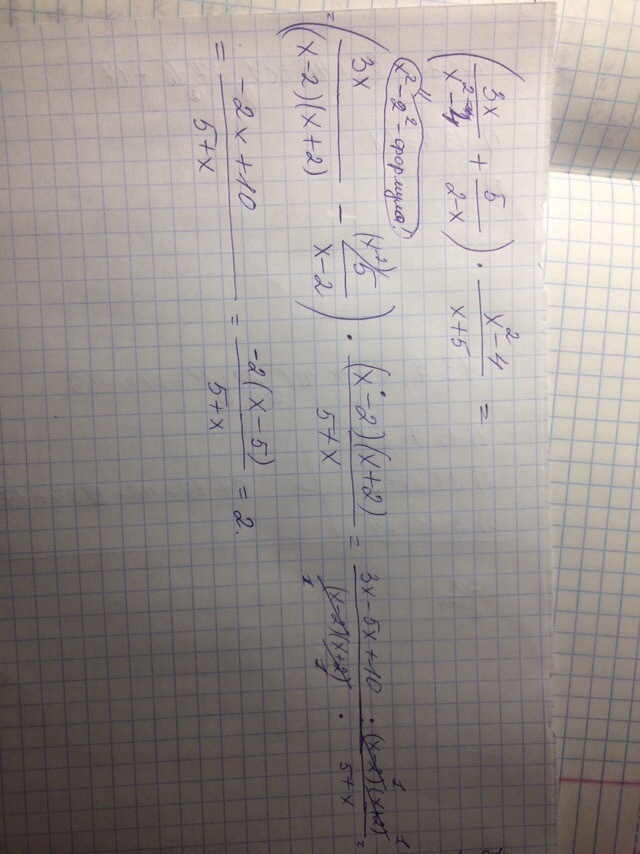 (3x/(x²-4) + 5/(2-x)) · (x²-4)/(x+5) =
x²-2² - формула!
= (3x/((x-2)(x+2)) - (x+2)/5/(x-2)) · ((x-2)(x+2))/(5+x) = (3x-5x+10)/((x-2)(x+2)) · ((x-2)(x+2))/(5+x) =
= (-2x+10)/(5+x) = (-2(x-5))/(5+x) = 2.